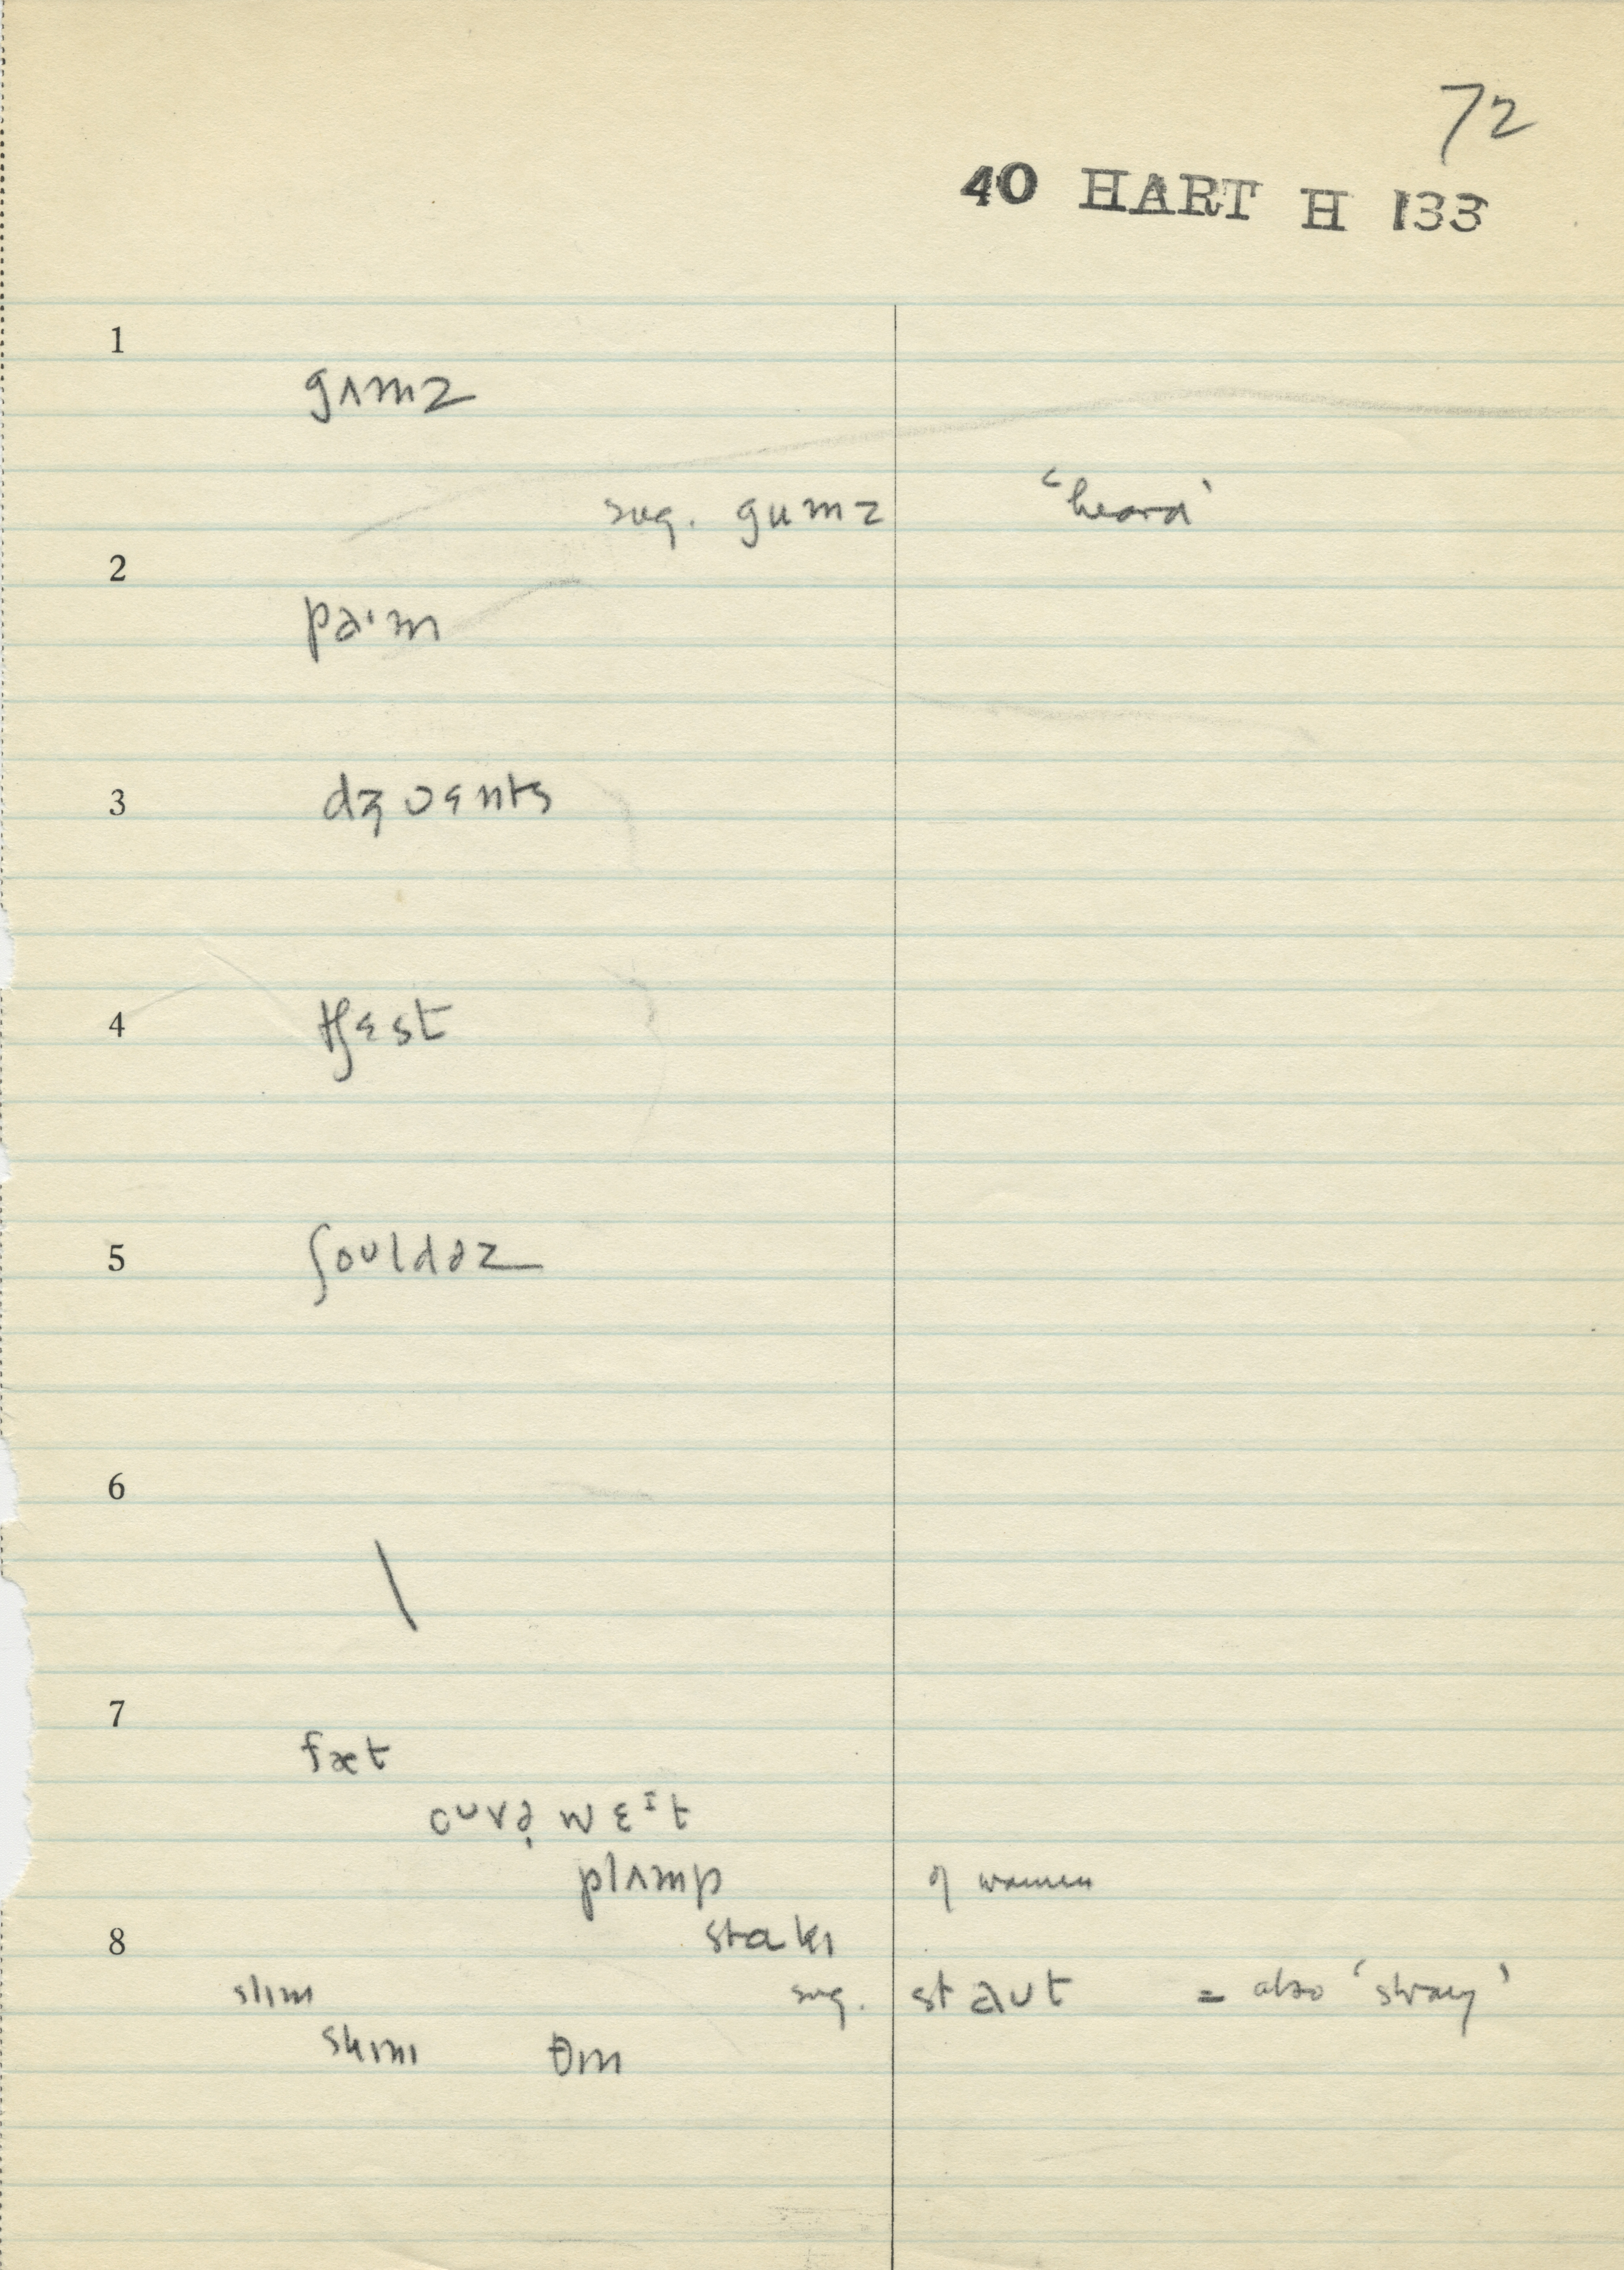 72
40 HART H 133
1
gʌmz
sug. gumz 'heard'
2
pa·m
3
dʒɔɛnts
4
tʃɛst
5
ʃoʊldəz
6
\
7
fæt
weᶦt
plʌmp of women
stɑkɪ
8
slɪm sug. staʊt = also 'strong'
skɪnɪ θɪn